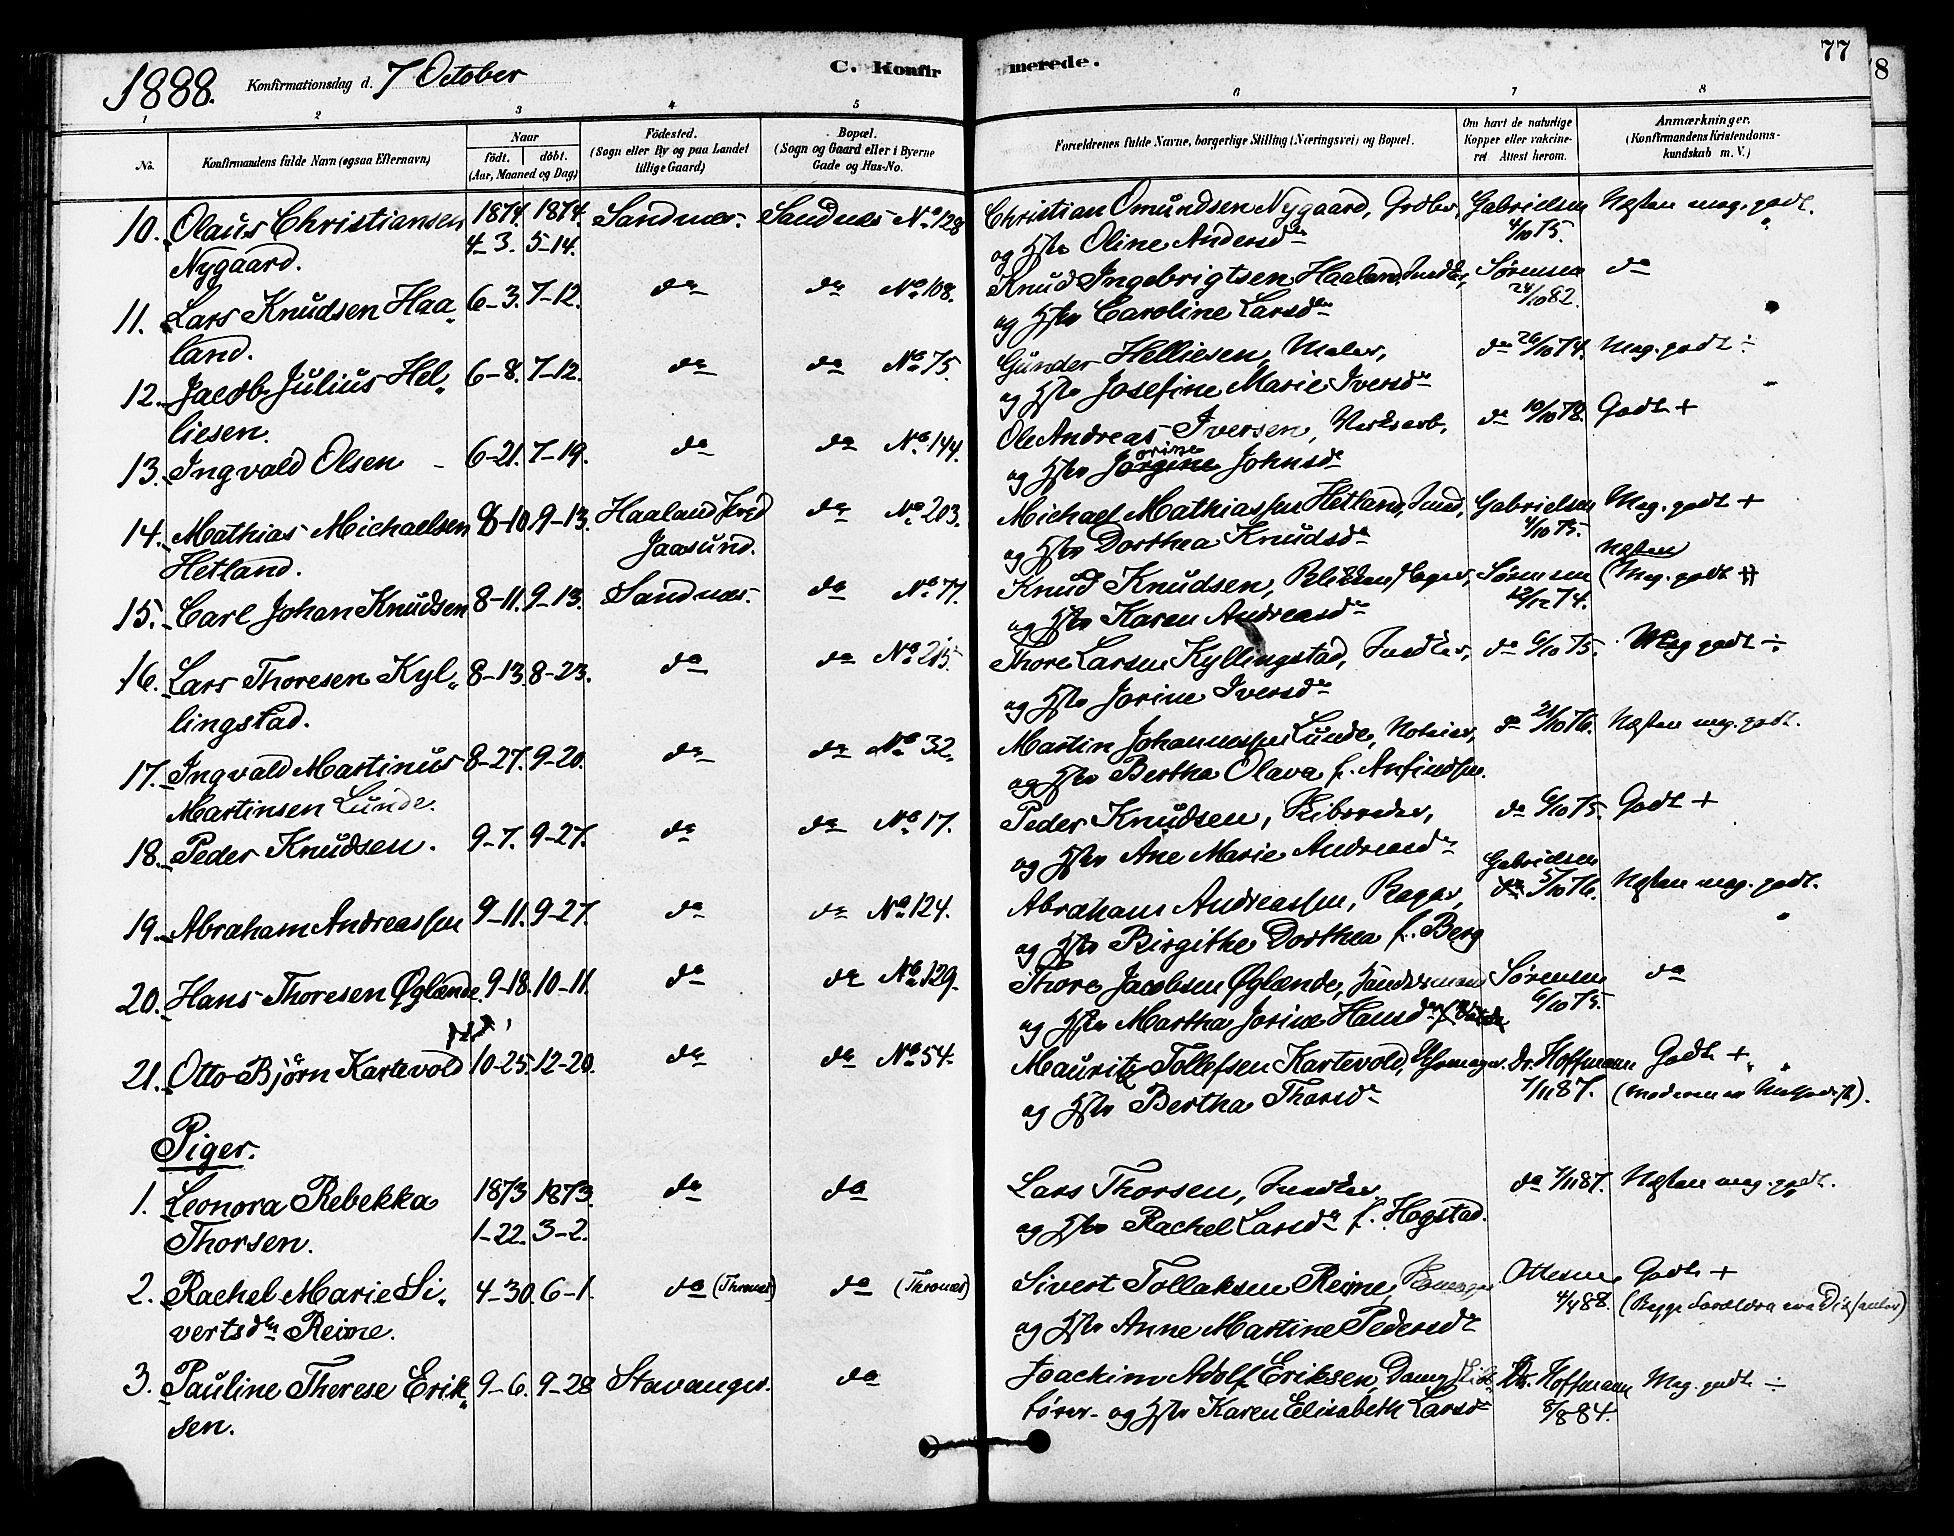 1888. Konfirmationsdag d. 7 October C. Konfirmerede. 77
78
1 2 3 4 5 6 7 8
No. Konfirmandens fulde Navn (ogsaa Efternavn) Naar født. døbt. (Aar, Maaned og Dag) Fødested. (Sogn eller By og paa Landet tillige Gaard) Bopæl. (Sogn og Gaard eller i Byerne Gade og Hus-No. Forældrenes fulde Navne, borgerlige Stilling (Næringsvei) og Bopæl. Om havt de naturlige Kopper eller vakcineret Attest herom. Anmærkninger. (Konfirmandens Kristendomskundskab m. V.)
10. Olaus Christiansen 1874. 1874. Sandnæs. Sandnæs No 128 Christian Omundsen Nygaard, Gaardbr, Gabrielsen Næsten meg. godt.
Nygaard. 4-3. 5-14. og Hstr Oline Andersdr 4/10 75.
11. Lars Knudsen Haa- 6-3. 7-12. do do No 108. Knud Ingebrigtsen Haaland, Snedker, Sørensen do
land. og Hstr Caroline Larsdr 24/10 82.
12. Jacob Julius Hel- 6-8. 7-12. do do No 75. Gunder Helliesen, Maler, do 26/10 74. Meg. godt ÷
liesen. og Hstr Josefine Marie Iversdr
13. Ingvald Olsen 6-21. 7-19. do do No 144. Ole Andreas Iversen, Verksarb, do 10/10 78. Godt +
og Hstr Jorgine Johnsdr
orine
14. Mathias Michaelsen 8-10. 9-13. Haaland Præd do No 203. Michael Mathiassen Hetland, Smed, Gabrielsen Meg. godt +
Hetland. Jaasund. og Hstr Dorthea Knudsdr 4/10 75.
15. Carl Johan Knudsen 8-11. 9-13. Sandnæs. do No 77. Knud Knudsen, Blikkenslager, Sørensen Næsten (Meg. godt
og Hstr Karen Andreasdr 12/12 74.
16. Lars Thoresen Kyl- 8-13. 8-23. do do No 215. Thore Larsen Kyllingstad, Snedker, do 6/10 75. Meg godt ÷
lingstad. og Hstr Jorine Iversdr
17. Ingvald Martinus 8-27. 9-20. do do No 32. Martin Johannessen Lunde, do 21/10 76. Næsten meg. godt.
Martinsen Lunde. og Hstr Bertha Olava f. Anfindsen.
18. Peder Knudsen. 9-7. 9-27. do do No 17. Peder Knudsen, Skibsreder, do 6/10 75. Godt +
og Hstr Ane Marie Andreasdr
19. Abraham Andreassen 9-11. 9-27. do do No 124. Abraham Andreassen, Bager, Gabrielsen 5/10 76. Næsten meg. godt.
og Hstr Birgithe Dorthea f. Berg
20. Hans Thoresen Øglænde. 9-18. 10-11. do do No 129. Thore Jacobsen Øglænde, Handelsmand Sørensen do
og Hstr Martha Jorine Hansdr 6/10 75.
21. Otto Bjørn Kartevold 10-25. 12-20. do do No 54. Mauritz Tollefsen Kartevold, Skomager. Dr. Hoffmann Godt +
og Hstr Bertha Thorsdr 7/11 87. (Moderen er Methodist).
Piger.
1. Leonora Rebekka 1873 1873. do do Lars Thorsen, Snedker do 7/11 87. Næsten meg. godt.
Thorsen. 1-22. 3-2. og Hstr Rachel Larsdr f. Hogstad.
2. Rachel Marie Si- 4-30. 6-1. do (Thrones) do (Thrones) Sivert Tollaksen Reime, Skomager Ottesen Godt +
vertsdtr Reime. og Hstr Anne Martine Pedersdr 4/4 88. (Begge Forældre ere Dissenter)
3. Pauline Therese Erik- 9-6. 9-28 Stavanger. do Joachim Adolf Eriksen, Dampskibs- Dr. Hoffmann Meg. godt ÷
sen. fører og Hstr Karen Elisabeth Larsdr 8/8 84.